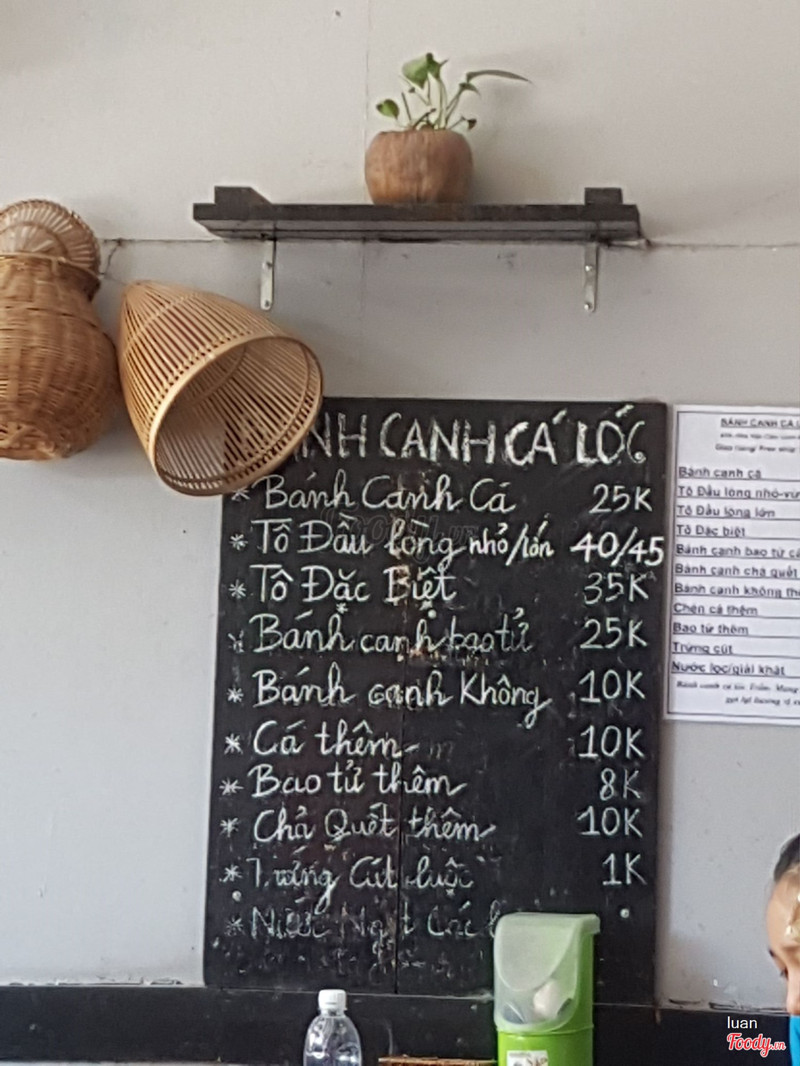 BÁNH CANH CÁ LÓC
* Bánh Canh Cá 25K
* Tô Đầu lòng nhỏ/lớn 40/45
* Tô Đặc Biệt 35K
* Bánh canh bao tử 25K
* Bánh canh Không 10K
* Cá thêm 10K
* Bao tử thêm 8K
* Chả Quết thêm 10K
* Trứng Cút luộc 1K
* Nước Ngọt Các
BÁNH CANH CÁ
Bánh canh cá
Tô Đầu lòng nhỏ-vừ
Tô Đầu lòng lớn
Tô Đặc biệt
Bánh canh bao tử cá
Bánh canh chả quết
Bánh canh không th
Chén cá thêm
Bao tử thêm
Trứng cút
Nước lọc/giải khát
luan
Foody.vn